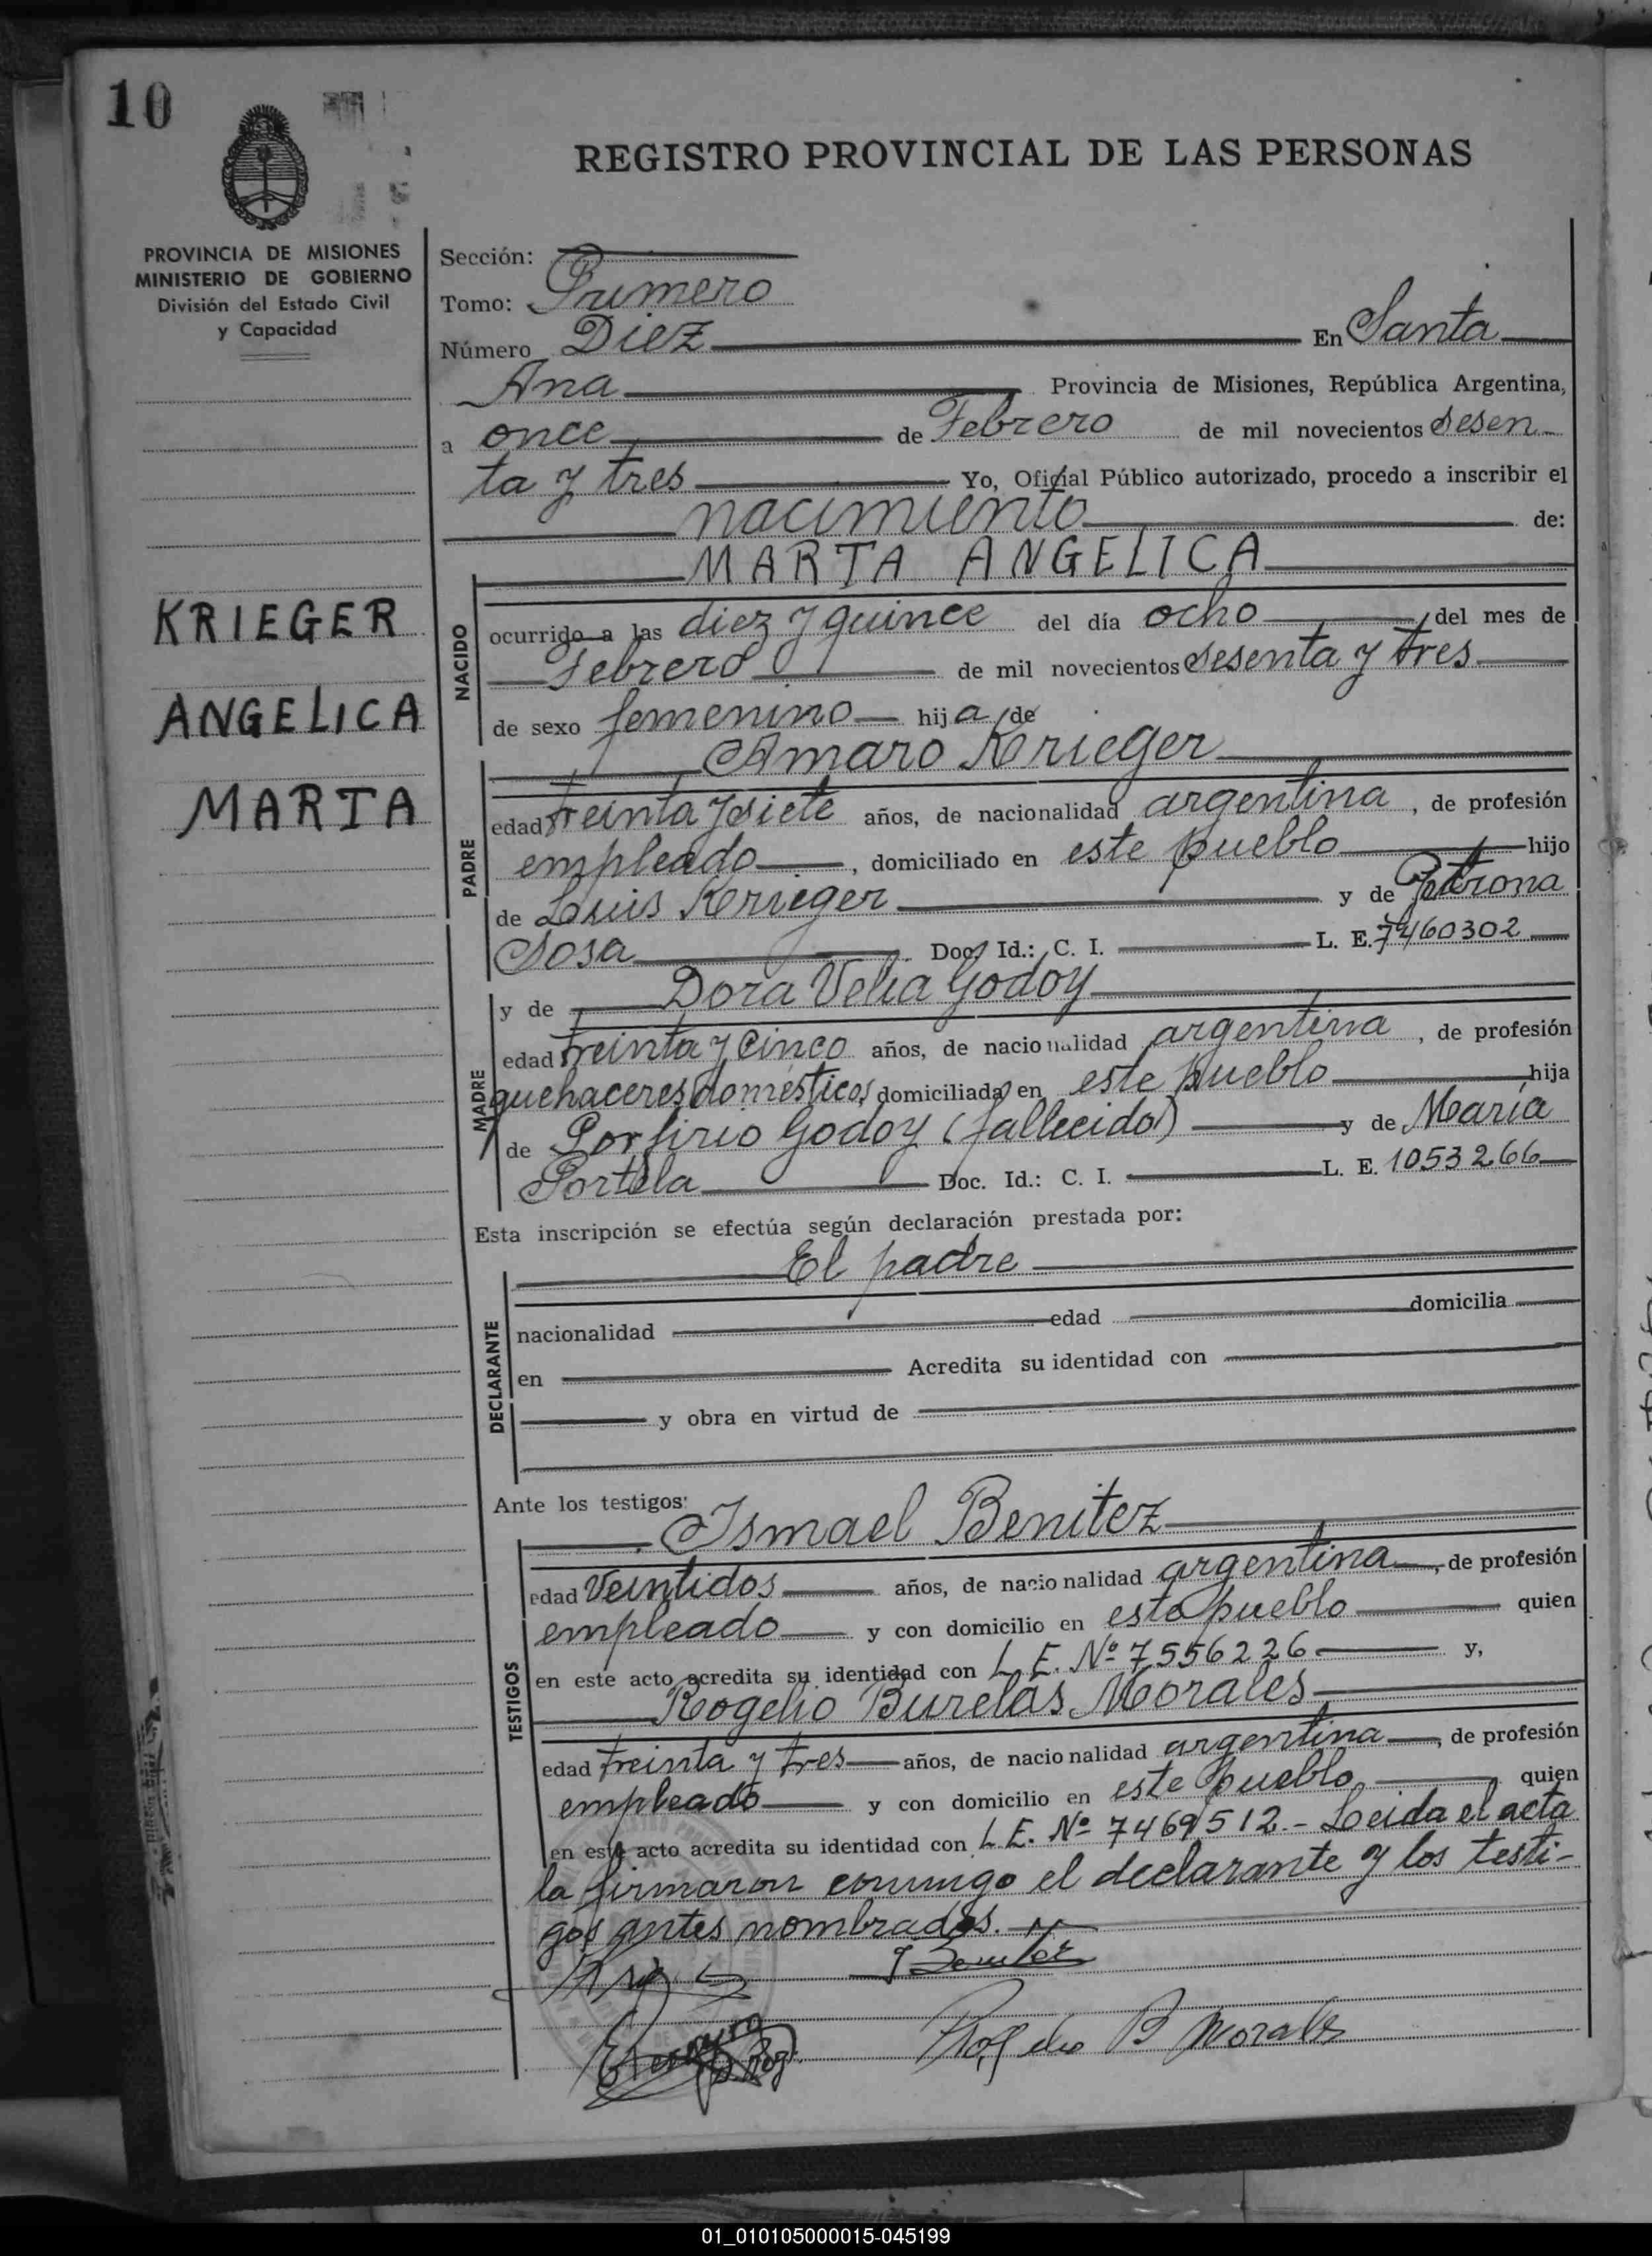 10
REGISTRO PROVINCIAL DE LAS PERSONAS
PROVINCIA DE MISIONES
MINISTERIO DE GOBIERNO
División del Estado Civil
y Capacidad
KRIEGER
ANGELICA
MARTA
Sección:
Tomo: Primero
Número Diez En Santa
Ana Provincia de Misiones, República Argentina,
a once de Febrero de mil novecientos sesen
ta y tres Yo, Oficial Público autorizado, procedo a inscribir el
nacimiento de:
NACIDO
MARTA ANGELICA
ocurrido a las diez y quince del día ocho del mes de
Febrero de mil novecientos sesenta y tres
de sexo femenino hija de
PADRE
Amaro Krieger
edad treinta y siete años, de nacionalidad argentina, de profesión
empleado, domiciliado en este pueblo hijo
de Luis Krieger y de Petrona
Sosa Doc. Id.: C. I. L. E. 7460302
MADRE
y de Dora Velia Godoy
edad treinta y cinco años, de nacionalidad argentina, de profesión
quehaceres domésticos, domiciliada en este pueblo hija
de Porfirio Godoy (fallecido) y de María
Portela Doc. Id.: C. I. L. E. 1053266
Esta inscripción se efectúa según declaración prestada por:
DECLARANTE
El padre
nacionalidad edad domicilia
en Acredita su identidad con
y obra en virtud de
Ante los testigos:
TESTIGOS
Ismael Benitez
edad Veintidos años, de nacionalidad argentina, de profesión
empleado y con domicilio en este pueblo quien
en este acto acredita su identidad con L. E. Nº 7556226 y,
Rogelio Burelas Morales
edad treinta y tres años, de nacionalidad argentina, de profesión
empleado y con domicilio en este pueblo quien
en este acto acredita su identidad con L. E. Nº 7469512.- Leida el acta
la firmaron conmigo el declarante y los testi-
gos antes nombrados.
J Benitez
Rogelio B Morales
01_010105000015-045199